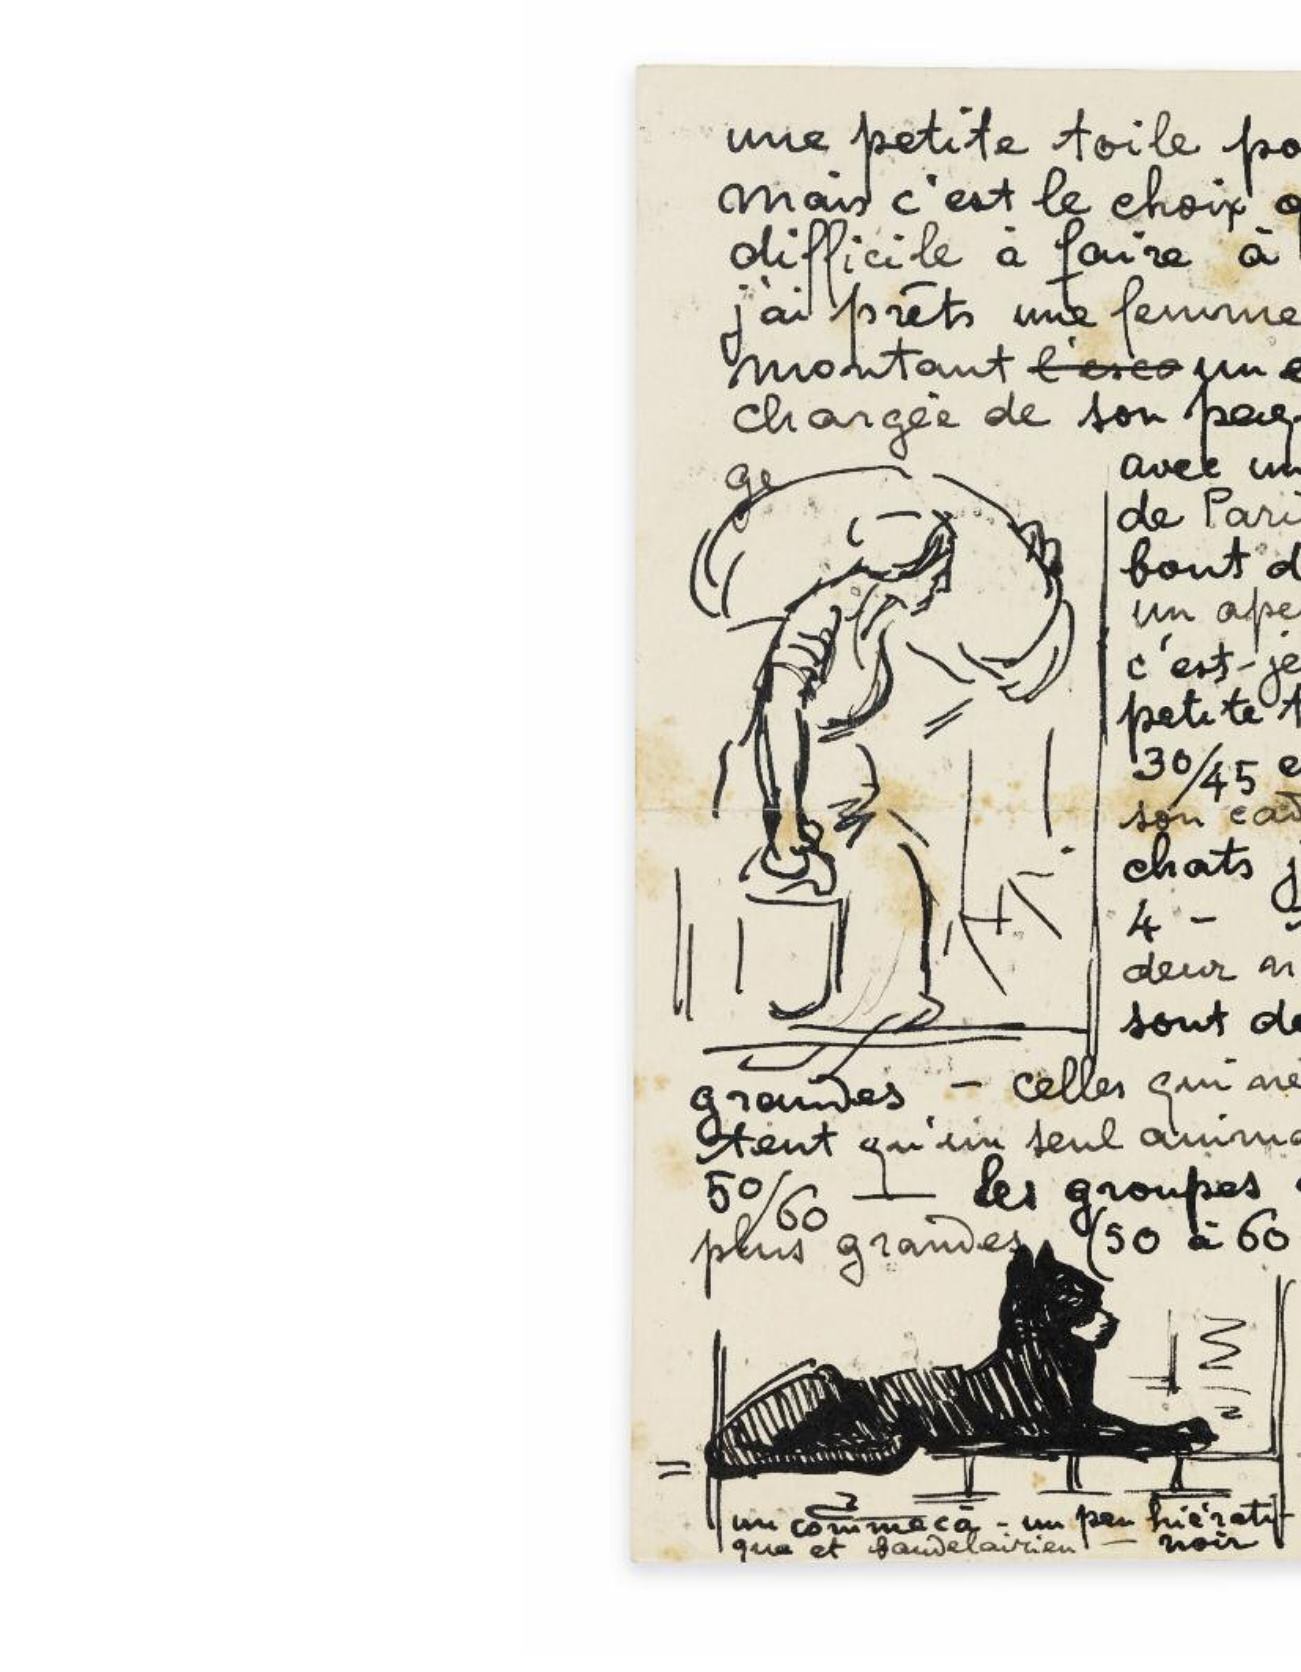 une petite toile po
mais c'est le choix q
difficile à faire à
j'ai prêts une femme
montant l'esca un e
chargée de son paq
ge
avec un
de Pari
bout d
un ape
c'est-je
petite t
30/45 e
son cad
chats j
4 -
deux n
sont de
grandes - celles qui ne
tent qu'un seul anima
50/60 — les groupes
plus grandes (50 à 60
un comme çà - un peu hiérati-
que et baudelairien - noir